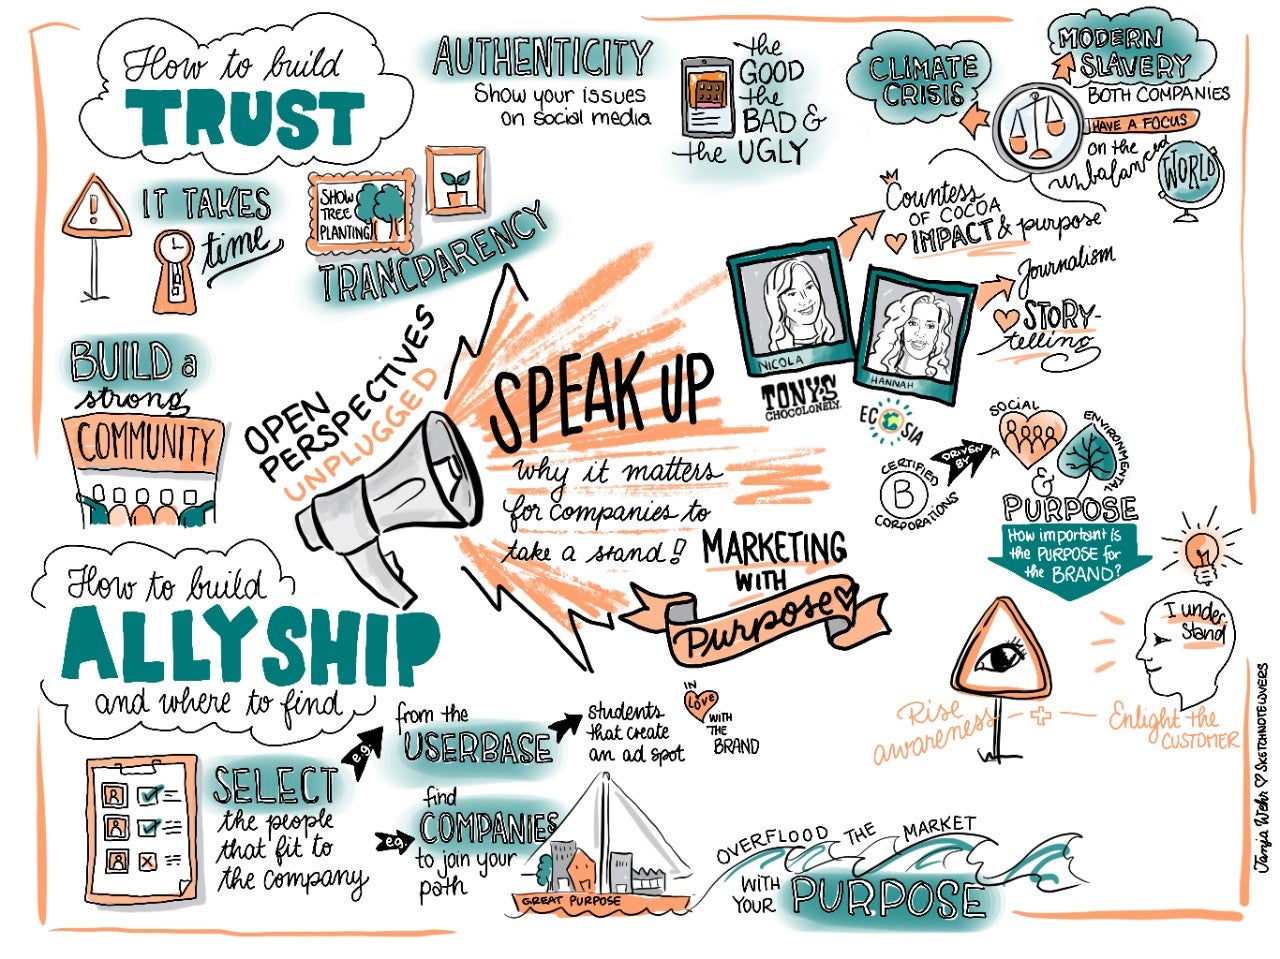 How to build
TRUST
IT TAKES
time
SHOW
TREE
PLANTING
TRANCPARENCY
AUTHENTICITY
Show your issues
on social media
the
GOOD
the
BAD &
the UGLY
BUILD a
strong
COMMUNITY
OPEN
PERSPECTIVES
UNPLUGGED
SPEAK UP
why it matters
for companies to
take a stand!!
MARKETING
WITH
Purpose
NICOLA
TONY'S
CHOCOLONELY
HANNAH
ECOSIA
Countess
OF COCOA
IMPACT & purpose
Journalism
STORY-
telling
CLIMATE
CRISIS
MODERN
SLAVERY
BOTH COMPANIES
HAVE A FOCUS
on the
unbalanced
WORLD
CERTIFIED
B
CORPORATIONS
DRIVEN
BY A
SOCIAL
&
ENVIRONMENTAL
PURPOSE
How important is
the PURPOSE for
the BRAND?
I under
stand
Rise
awareness
+
Enlight the
CUSTOMER
How to build
ALLYSHIP
and where to find
SELECT
the people
that fit to
the company
e.g.
from the
USERBASE
students
that create
an ad spot
IN
LOVE
WITH
THE
BRAND
e.g.
find
COMPANIES
to join your
path
GREAT PURPOSE
OVERFLOOD THE MARKET
WITH
YOUR
PURPOSE
Tanja Wehr ♡ SKETCHNOTELOVERS